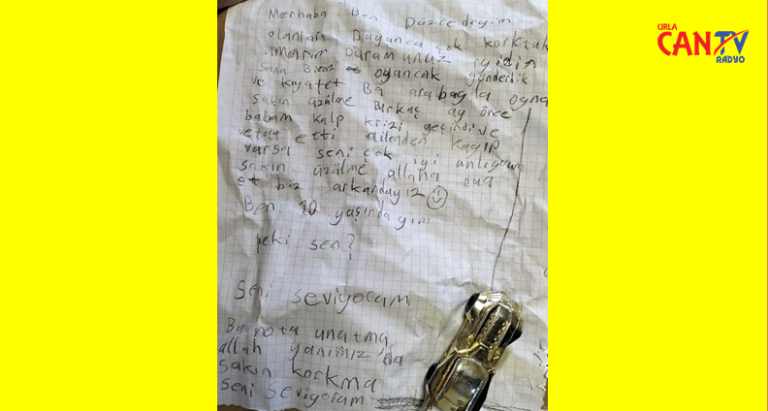 Merhaba Ben Düzcedeyim
olanları Duyunca çok korktuk
umarım Durumunuz iyidir
sana Biraz oyuncak gönderdik
ve kıyafet Bu arabayla oyna
sakın üzülme Birkaç ay önce
babam kalp krizi geçirdi ve
vefat etti ailenden kayıp
varsa seni çok iyi anlıyorum
sakın üzülme allaha dua
et biz arkandayız
Ben 10 yaşındayım
peki sen?
Seni seviyorum
Bu notu unutma
allah yanımız'da
sakın korkma
seni seviyorum
URLA
CAN TV
RADYO